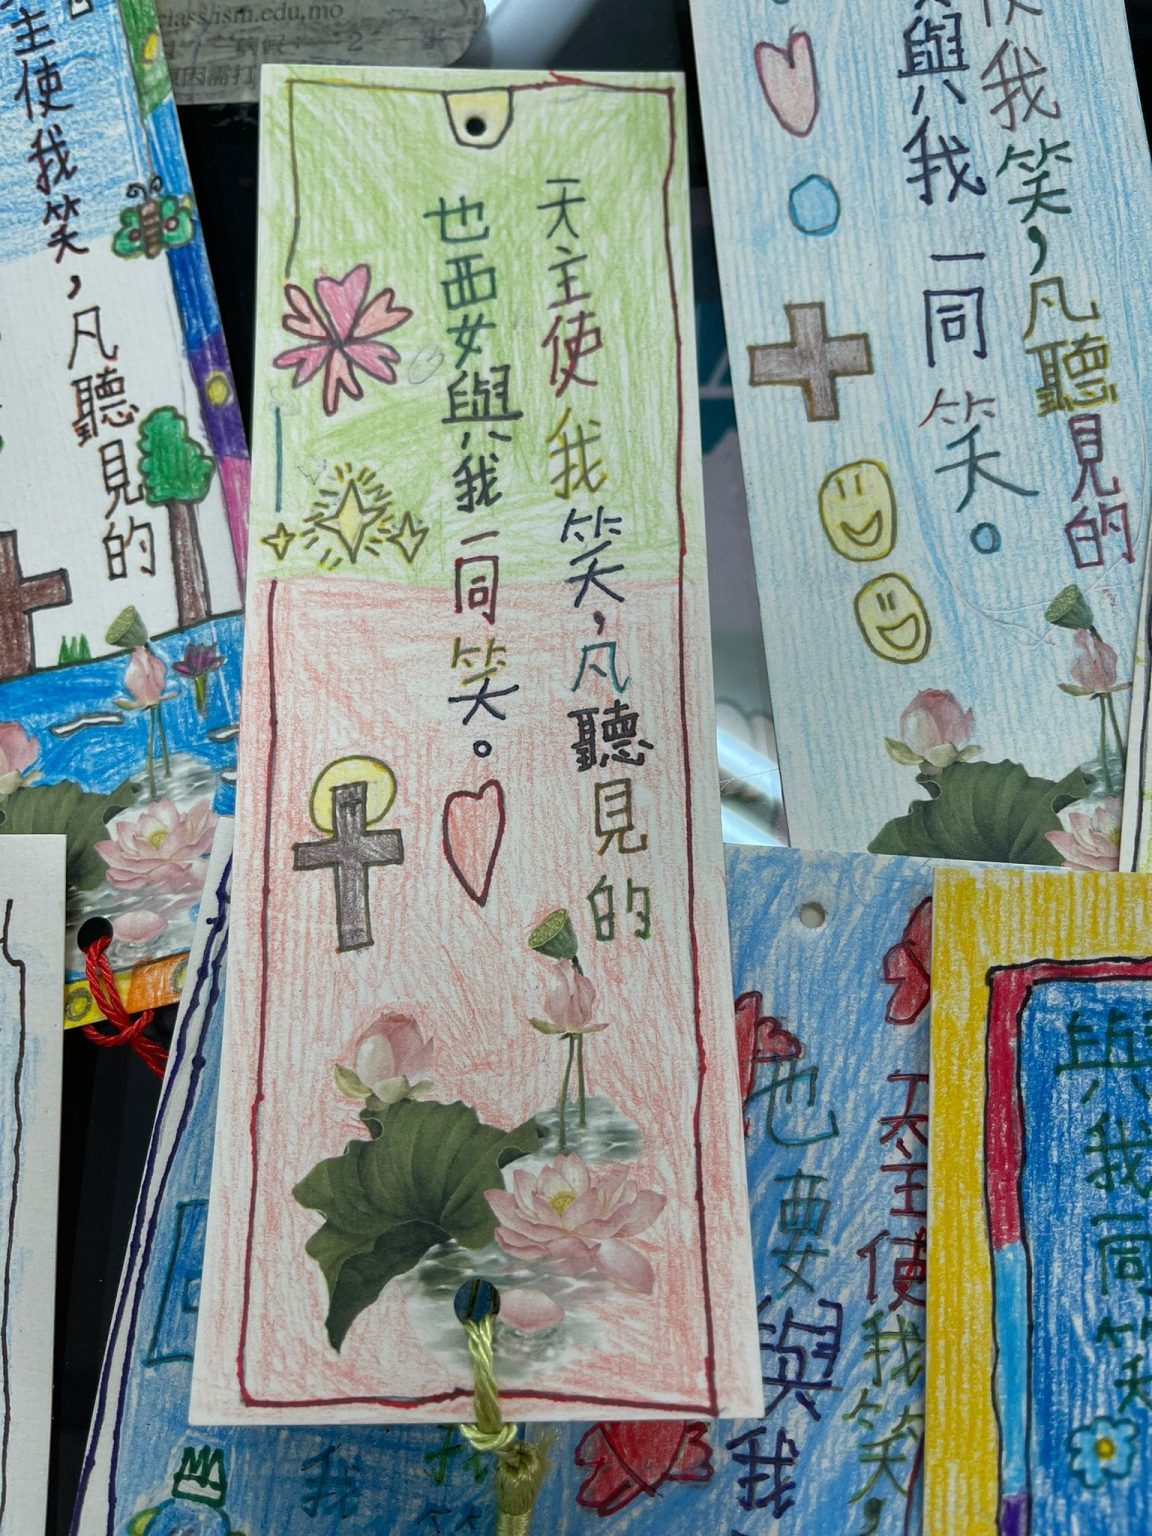 classhsm.edu.mo
主使我笑，凡聽見的
天主使我笑，凡聽見的
也要與我一同笑。
使我笑，凡聽見的
與我一同笑。
天主使我笑，
也要與我
與我同笑
我